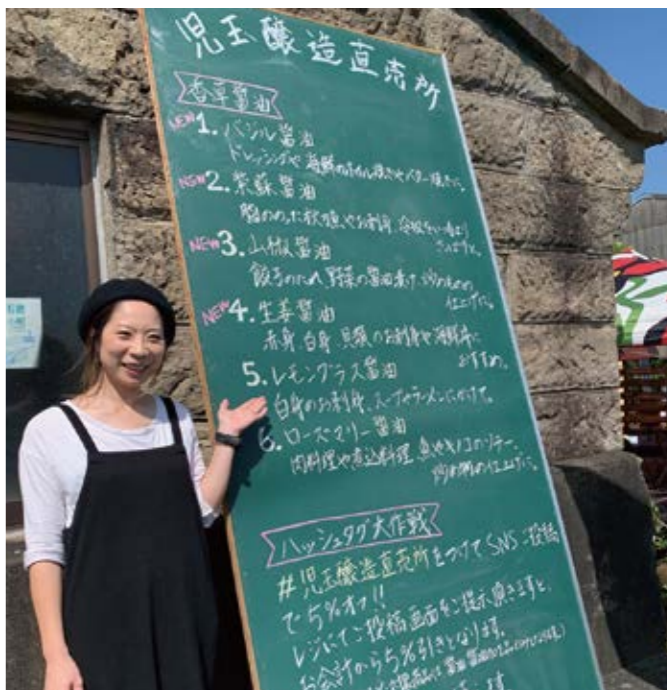 児玉醸造直売所
香草醤油
NEW 1. バジル醤油
ドレッシングや海鮮のホイル焼きやバター焼きに。
NEW 2. 紫蘇醤油
脂ののった秋や、お刺身、冷奴を
さっぱりと。
NEW 3. 山椒醤油
餃子のたれ、野菜の醤油漬け、炒めものの
仕上げに。
NEW 4. 生姜醤油
赤身、白身、貝類のお刺身や海鮮丼に
おすすめ。
5. レモングラス醤油
白身のお刺身、スープやラーメンにかけて。
6. ローズマリー醤油
肉料理や煮込料理、魚やキノコのソテー、
炒め物の仕上げに。
ハッシュタグ大作戦
#児玉醸造直売所をつけてSNSご投稿
で5%オフ!!
レジにてご投稿画面をご提示頂きますと、
お会計から5%引きとなります。